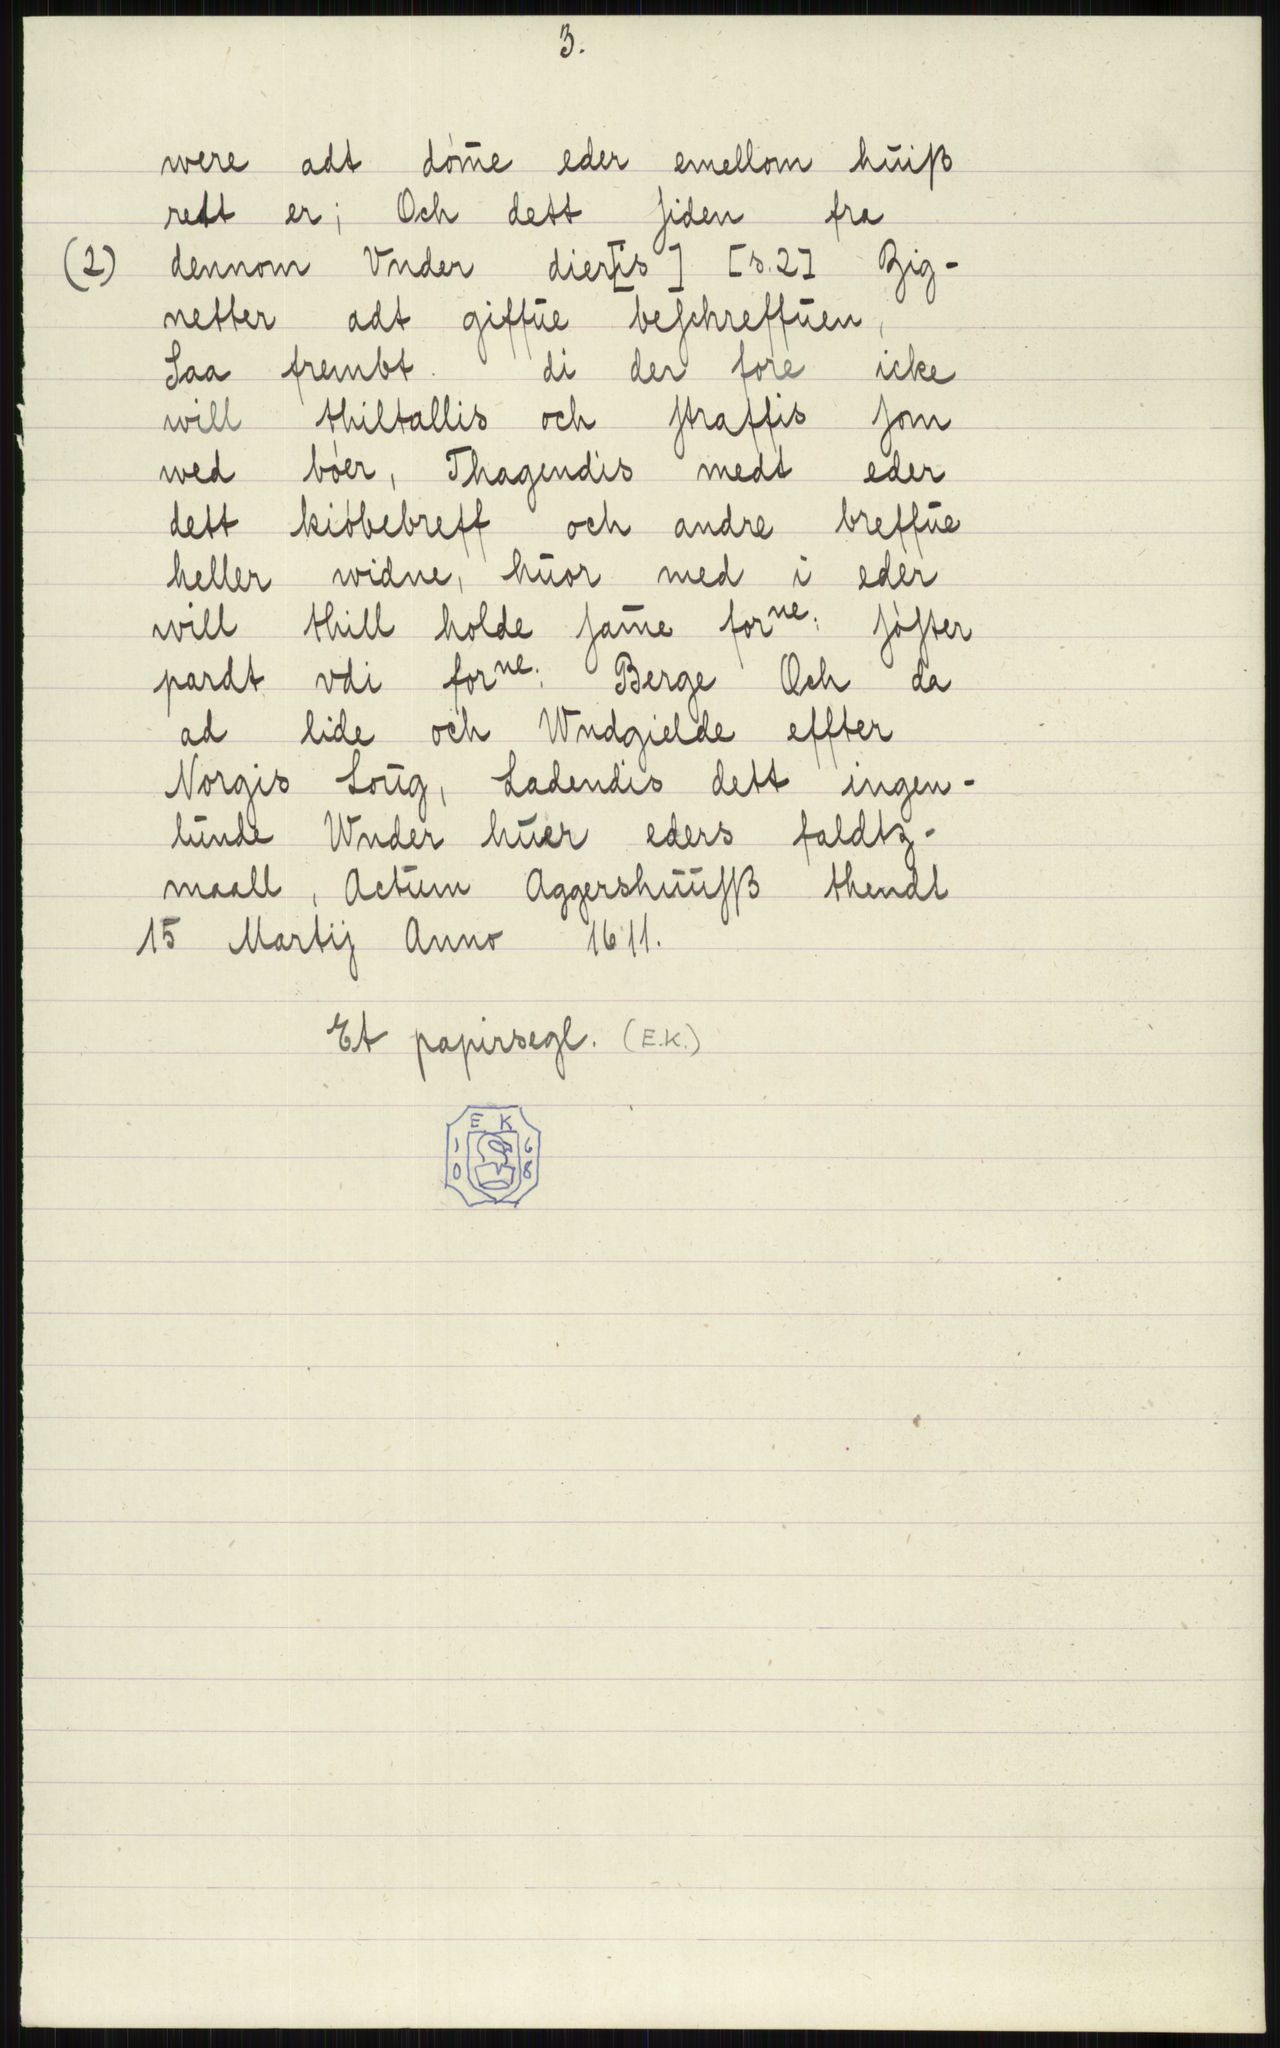 3.
were adt dóm̄e eder emellom hūiß
rett er; Och dett ſiden fra
(2) dennom Vnder dier[is] [s.2] Zig-
netter adt giffūe beſchreffūen,
Saa frembt. di der fore icke
will thiltallis och ſtraffis ſom
wed bóer, Thagendis medt eder
dett kióbebreff och andre breffūe
heller widne, hūor med i eder
will thill holde ſam̄e forⁿᵉ: ſóſter
pardt vdi forⁿᵉ: Berge Och da
ad lide och Wndgielde effter
Norgis Loūg, Ladendis dett ingen-
lūnde Wnder hūer eders faldtz-
maall, Actūm Aggershūūſß thendt
15 Martij Anno 1611.
Et papirsegl. (E.K.)
E K
1 6
0 8